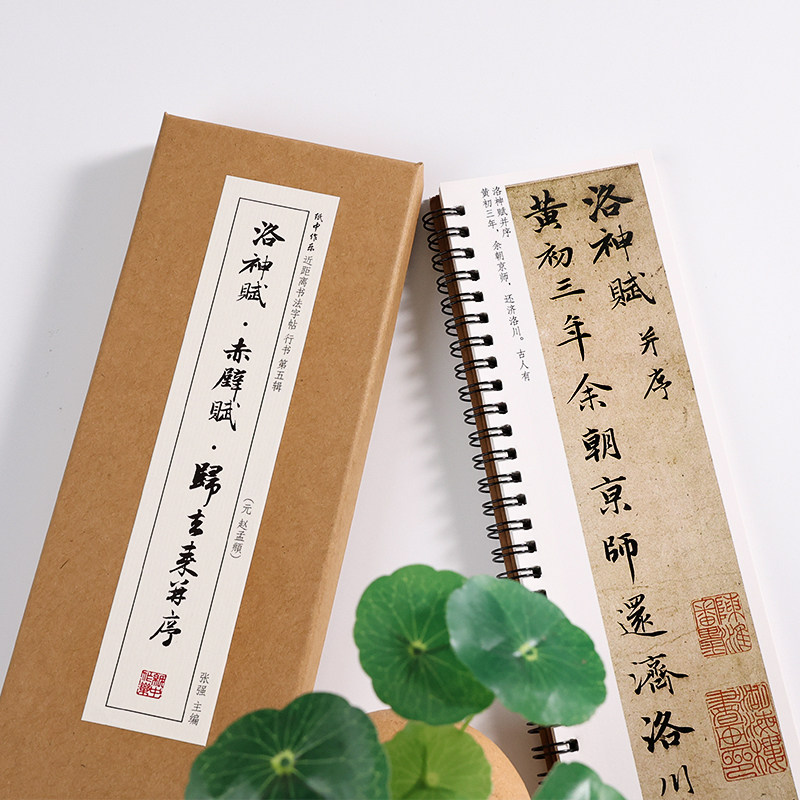 纸中作乐 近距离书法字帖 行书 第五辑
洛神賦·赤壁賦·歸去来并序
（元 赵孟頫）
张强 主编
洛神赋并序
黄初三年，余朝京师，还济洛川。古人有
洛神賦 并序
黄初三年余朝京師還濟洛川